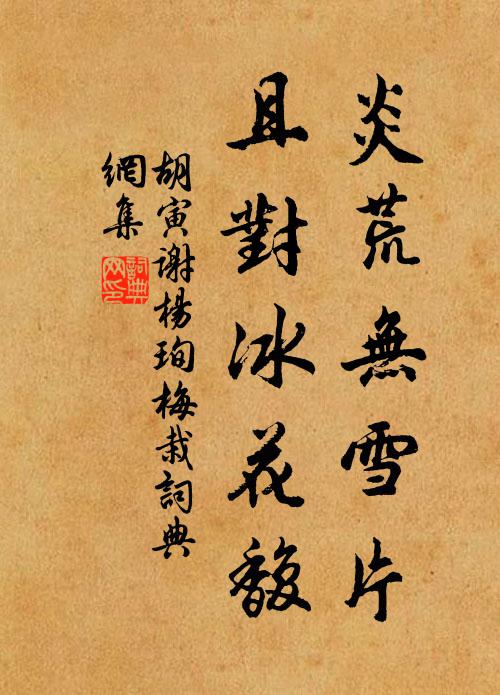 炎荒無雪片
且對冰花馥
胡寅謝楊珣梅栽詞典
網集
詞典
網印